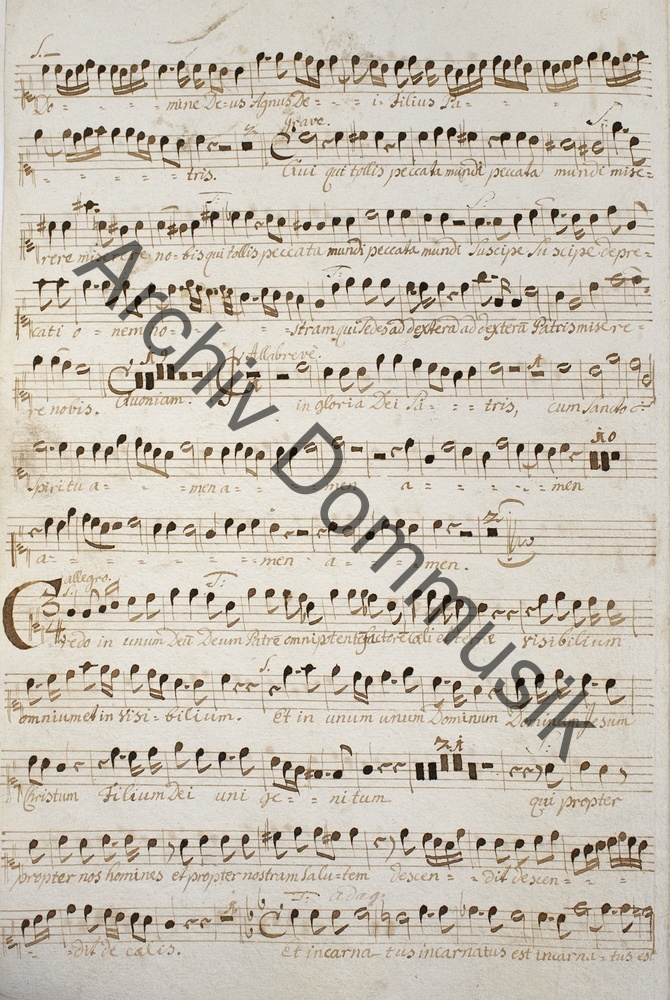 S.
Do - - - mine De=us Agnus De= - - i Filius Pa= - - -
Grave. S:
- - - - - tris. Qui qui tollis peccata mundi peccata mundi mise=
T: S:
rere miserere no=bis qui tollis peccata mundi peccata mundi Suscipe Suscipe depre=
T:
cati o= nem no= - - - stram qui Sedes ad dextera ad dextera Patris misere=
Allabreve.
re nobis. Quoniam. in gloria Dei Pa= - - tris, cum Sancto
10
Spiritu a= - - men a= - - - men a= - - - - men
2
a= - - - - - men a= - - men.
allegro.
S. T:
Credo in unum Deū Deum Patrē omnipotentē factorē cœli et terræ visibilium
S.
omnium et in visi=bilium. Et in unum unum Dominum Dominum Jesum
Christum Filium Dei uni ge= - nitum qui propter
propter nos homines et propter nostram salu=tem descen= - dit descen= - -
T: adag:
- - dit de cælis. Et incarna=tus incarnatus est incarna=tus est
Archiv Dommusik